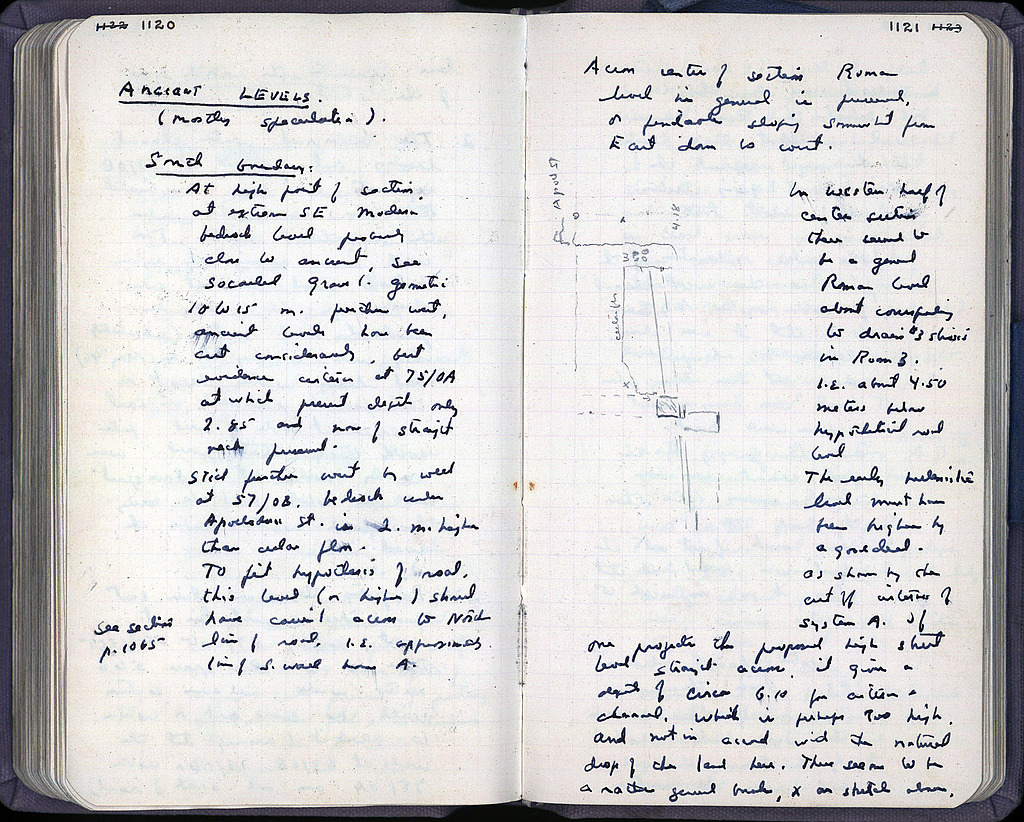 1122 1120
ANCIENT LEVELS.
(mostly speculation).
South boundary:
At high point of section,
at extreme SE modern
bedrock level probably
close to ancient, see
socalled Grave 1. geometric
10 to 15 m. further west,
ancient levels have been
cut considerably, but
evidence cistern at 75/OA
at which present depth only
2.85 and now of straight
neck preserved.
Still further west by well
at 57/OB, bedrock under
Apostolou St. is 2. m. higher
than cellar floor.
To fit hypothesis of road,
this level (or higher) should
have carried across to North
line of road, i.e. approximate
line of S. wall house A.
See section
p. 1065
1121 1123
Across center of section Roman
level in general is preserved,
or pendant sloping somewhat from
East down to west.
4.18
In western half of
center section
there seemed to
be a general
Roman level
about corresponding
to drain #3 shows
in Room 3.
I.E. about 4.50
meters below
hypothetical road
level
The early hellenistic
level must have
been higher by
a good deal.
as shown by the
cut off cisterns of
System A. If
one projects the proposed high street
level straight across, it gives a
depth of circa 6.10 for cistern -
channel. Which is perhaps too high.
and not in accord with the natural
drop of the land here. There seems to be
a rather general break, x on sketch above,